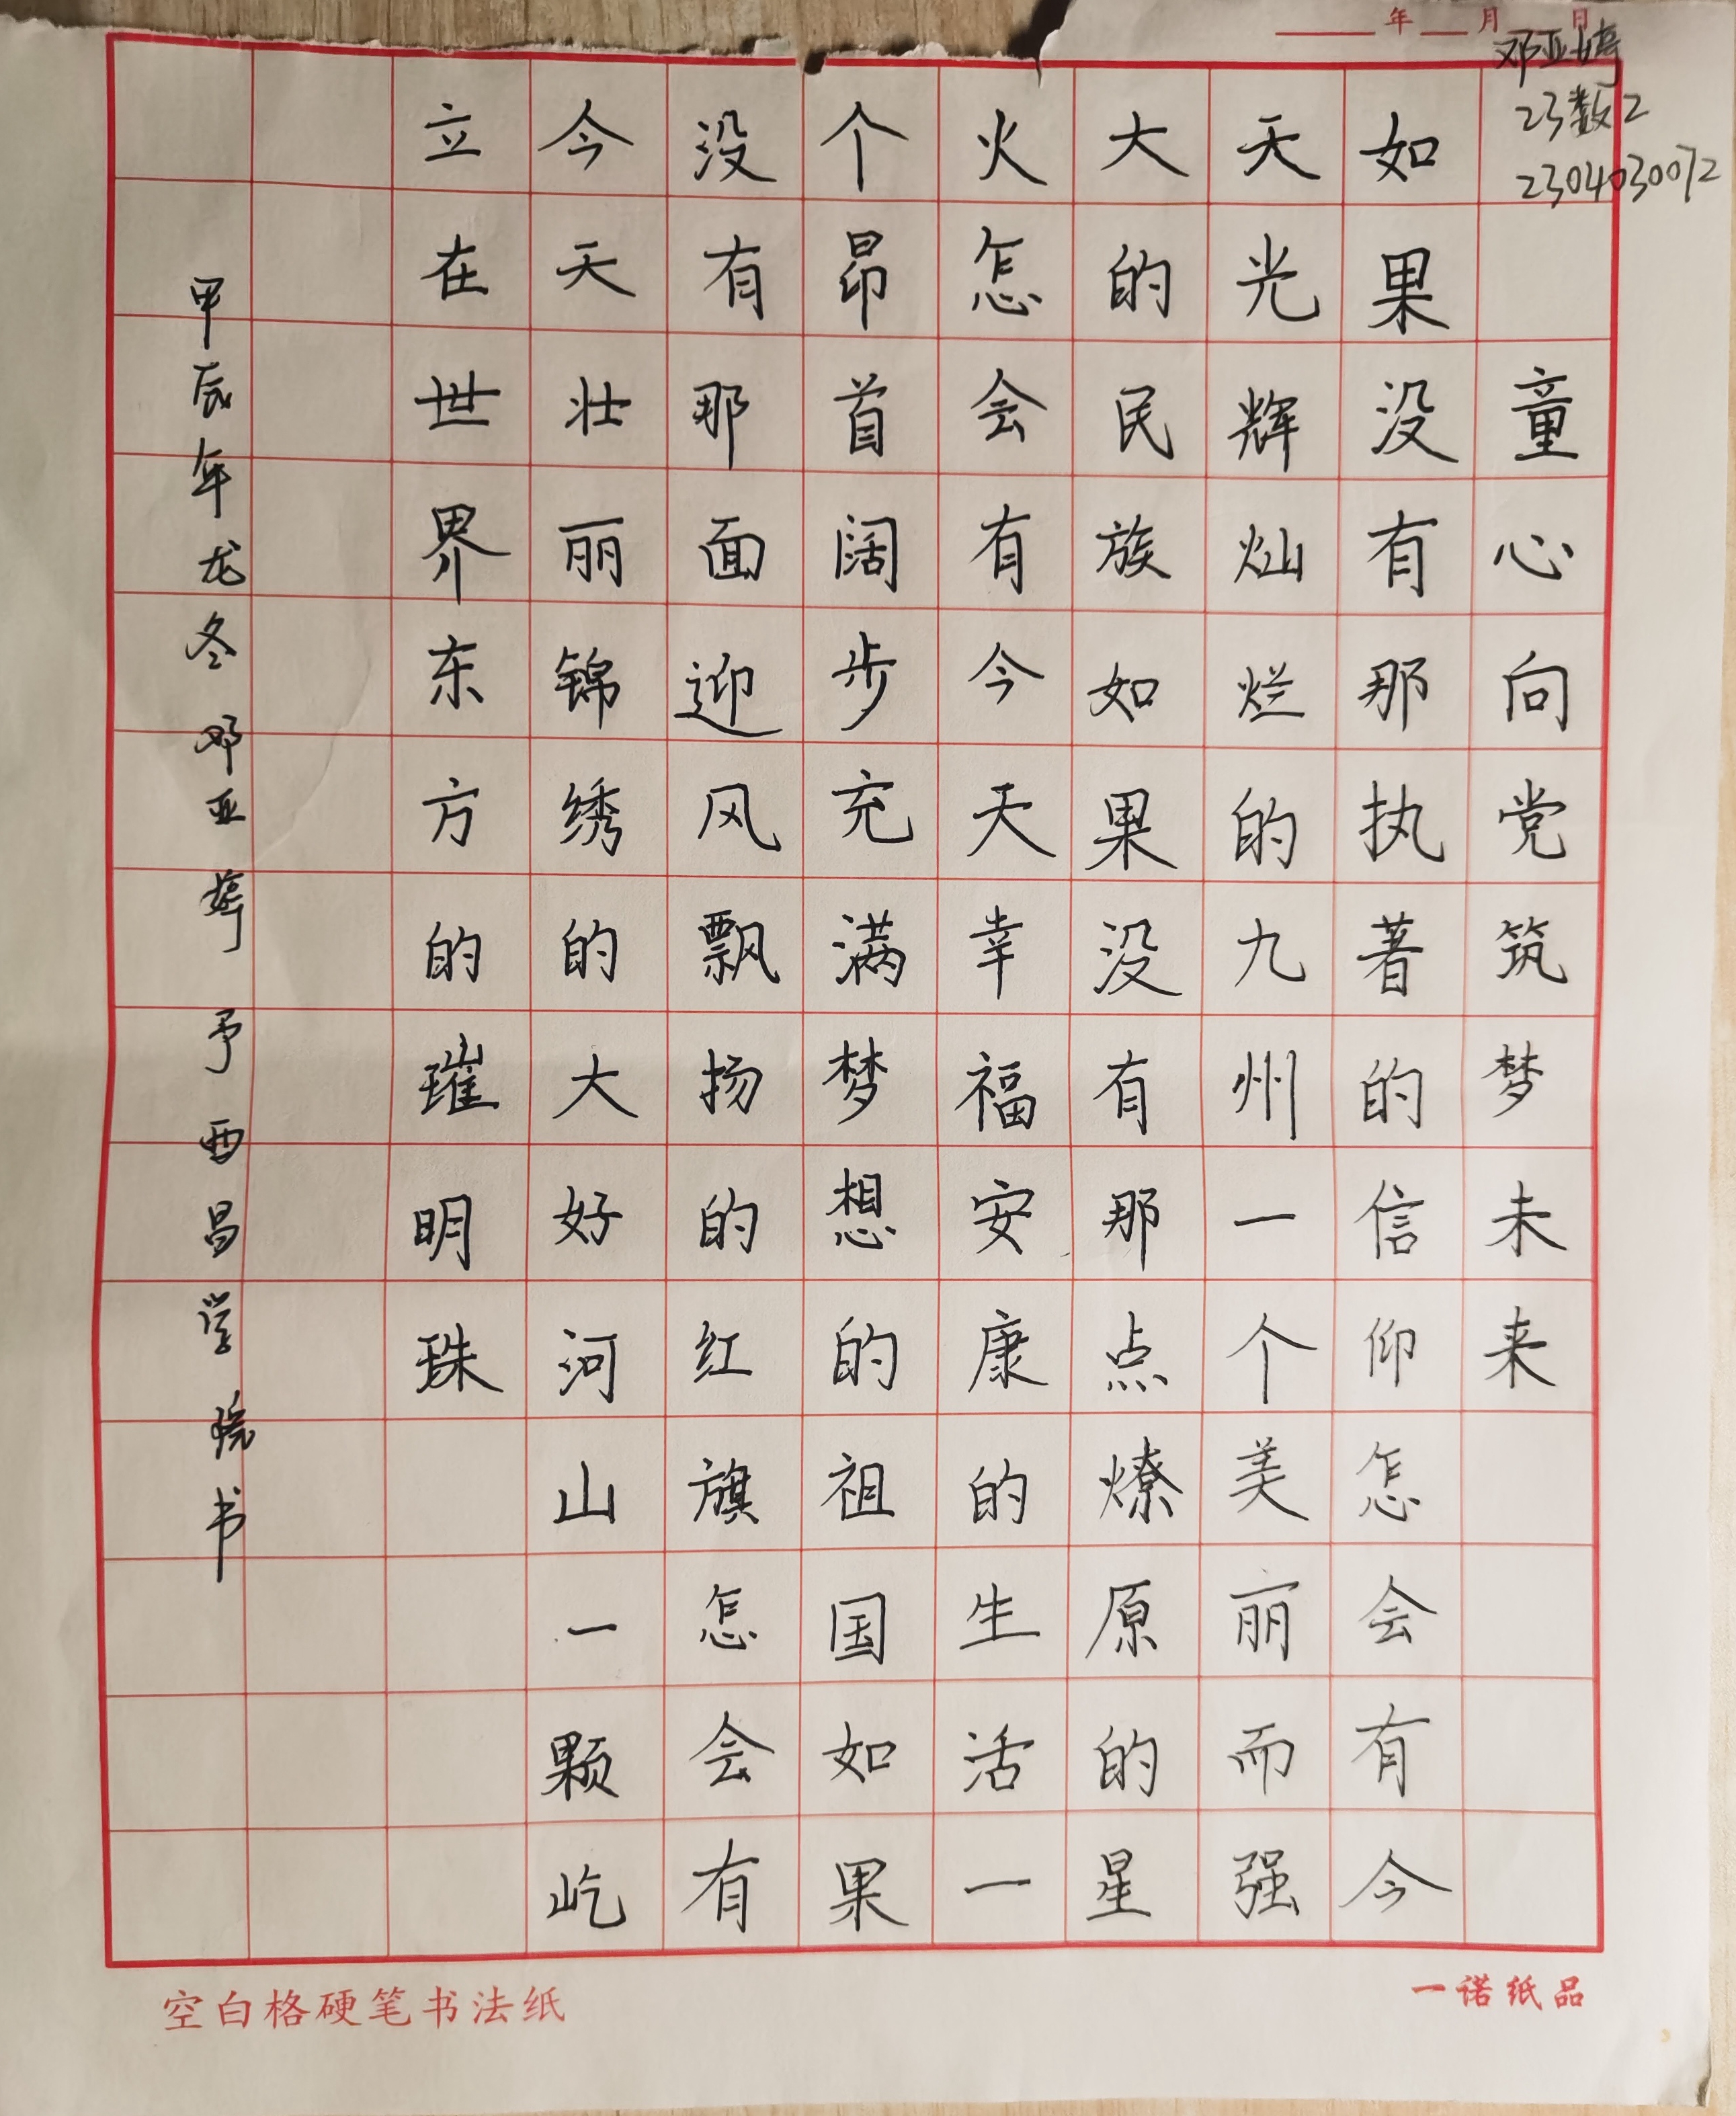 年 月 日
邓亚婷
23数2
2304030072
童心向党筑梦未来
如果没有那执著的信仰怎会有今
天光辉灿烂的九州一个美丽而强
大的民族如果没有那点燎原的星
火怎会有今天幸福安康的生活一
个昂首阔步充满梦想的祖国如果
没有那面迎风飘扬的红旗怎会有
今天壮丽锦绣的大好河山一颗屹
立在世界东方的璀明珠
甲辰年龙冬邓亚婷予西昌学院书
空白格硬笔书法纸
一诺纸品